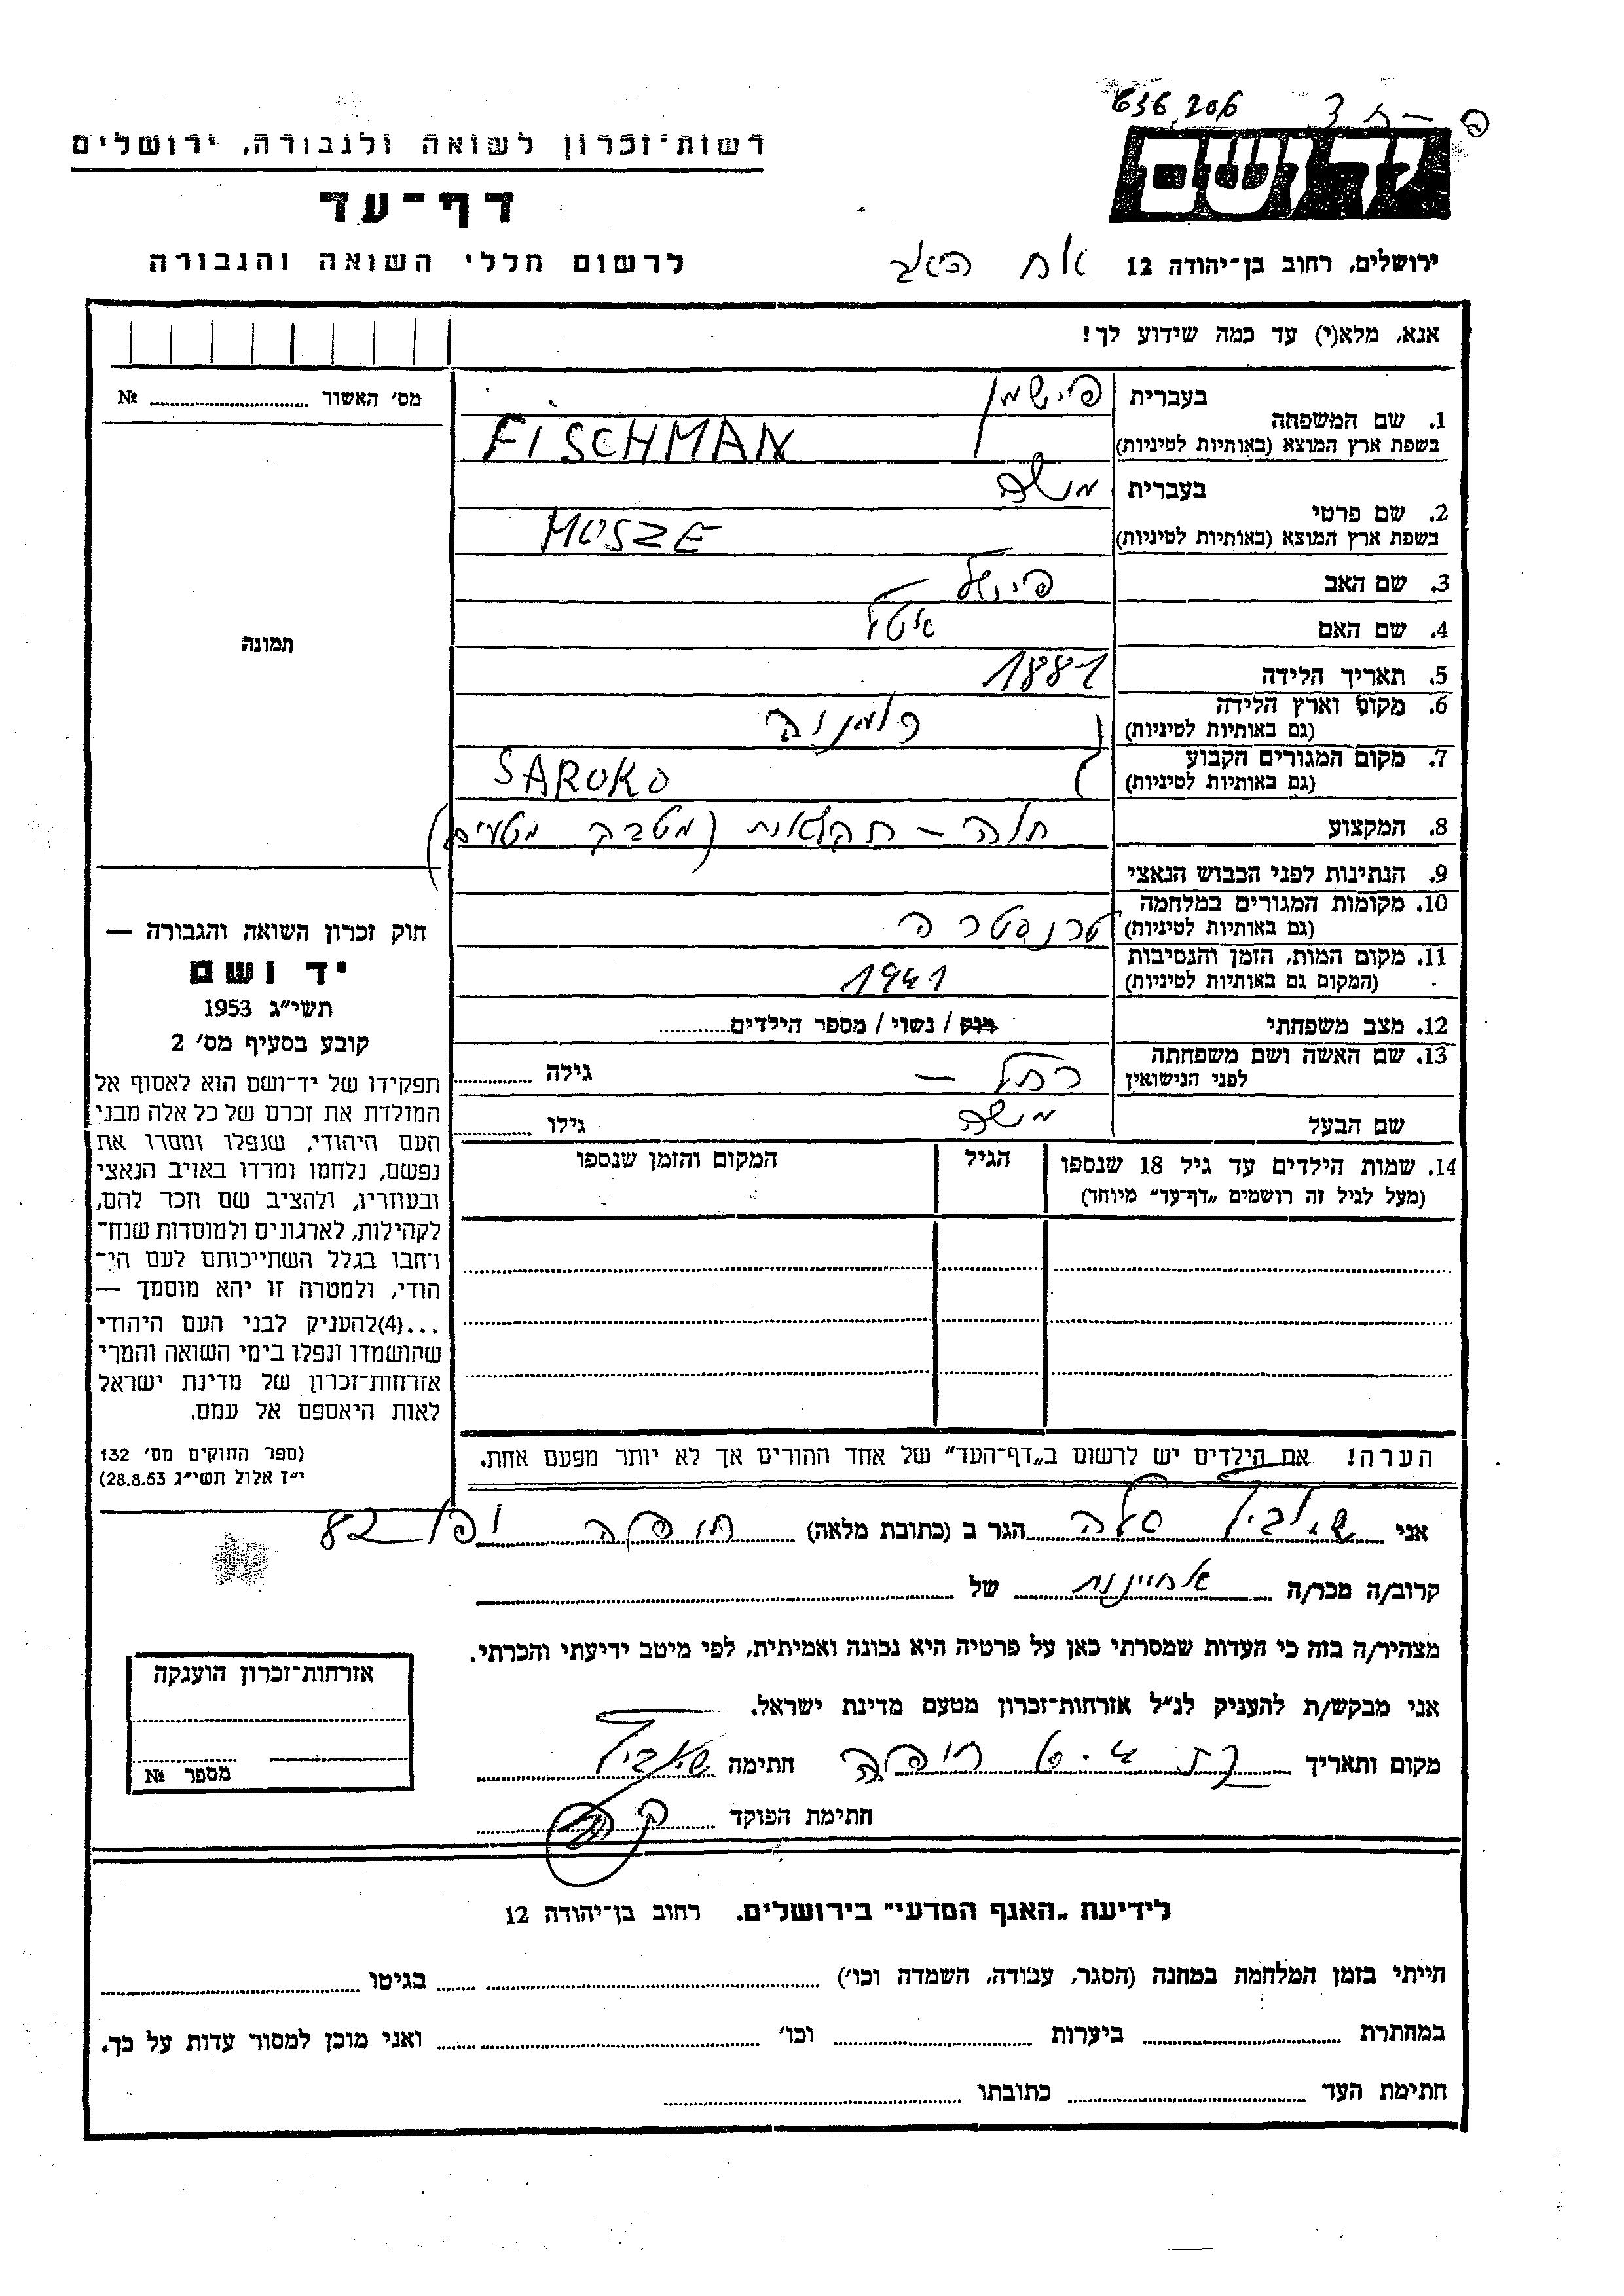 636206
רשות־זכרון לשואה ולגבורה, ירושלים
דף־עד
לרשום חללי השואה והגבורה
ירושלים, רחוב בן־יהודה 12
אח האב
אנא, מלא(י) עד כמה שידוע לך!
מס׳ האשור № 
1. שם המשפחה
בעברית פישמן
בשפת ארץ המוצא (באותיות לטיניות) FISCHMAN
2. שם פרטי
בעברית משה
בשפת ארץ המוצא (באותיות לטיניות) MOSZE
3. שם האב פישל
4. שם האם איטל
5. תאריך הלידה 1881
6. מקום וארץ הלידה
(גם באותיות לטיניות) רומניה
7. מקום המגורים הקבוע
(גם באותיות לטיניות) SAROKO
8. המקצוע חקלאות
9. הנתינות לפני הכבוש הנאצי
10. מקומות המגורים במלחמה
(גם באותיות לטיניות) טרנסטריה
11. מקום המות, הזמן והנסיבות
(המקום גם באותיות לטיניות) 1941
12. מצב משפחתי רוק / נשוי / מספר הילדים
13. שם האשה ושם משפחתה
לפני הנישואין רחל – גילה
שם הבעל משה גילו
14. שמות הילדים עד גיל 18 שנספו
(מעל לגיל זה רושמים „דף־עד” מיוחד)
הגיל
המקום והזמן שנספו
הערה! את הילדים יש לרשום ב„דף־העד” של אחד ההורים אך לא יותר מפעם אחת.
תמונה
חוק זכרון השואה והגבורה —
יד ושם
תשי״ג 1953
קובע בסעיף מס׳ 2
תפקידו של יד־ושם הוא לאסוף אל
המולדת את זכרם של כל אלה מבני
העם היהודי, שנפלו ומסרו את
נפשם, נלחמו ומרדו באויב הנאצי
ובעוזריו, ולהציב שם וזכר להם,
לקהילות, לארגונים ולמוסדות שנח־
רבו בגלל השתייכותם לעם הי־
הודי, ולמטרה זו יהא מוסמך —
...(4)להעניק לבני העם היהודי
שהושמדו ונפלו בימי השואה והמרי
אזרחות־זכרון של מדינת ישראל
לאות היאספם אל עמם.
(ספר החוקים מס׳ 132
י״ז אלול תשי״ג 28.8.53)
אני סלה הגר ב (כתובת מלאה) חיפה יפו 82
קרוב/ה מכר/ה אחיינת של
מצהיר/ה בזה כי העדות שמסרתי כאן על פרטיה היא נכונה ואמיתית, לפי מיטב ידיעתי והכרתי.
אני מבקש/ת להעניק לנ״ל אזרחות־זכרון מטעם מדינת ישראל.
מקום ותאריך חיפה חתימה
חתימת הפוקד
אזרחות־זכרון הוענקה
מספר №
לידיעת „האגף המדעי” בירושלים. רחוב בן־יהודה 12
הייתי בזמן המלחמה במחנה (הסגר, עבודה, השמדה וכו׳) בגיטו
במחתרת ביערות וכו׳ ואני מוכן למסור עדות על כך.
חתימת העד כתובתו